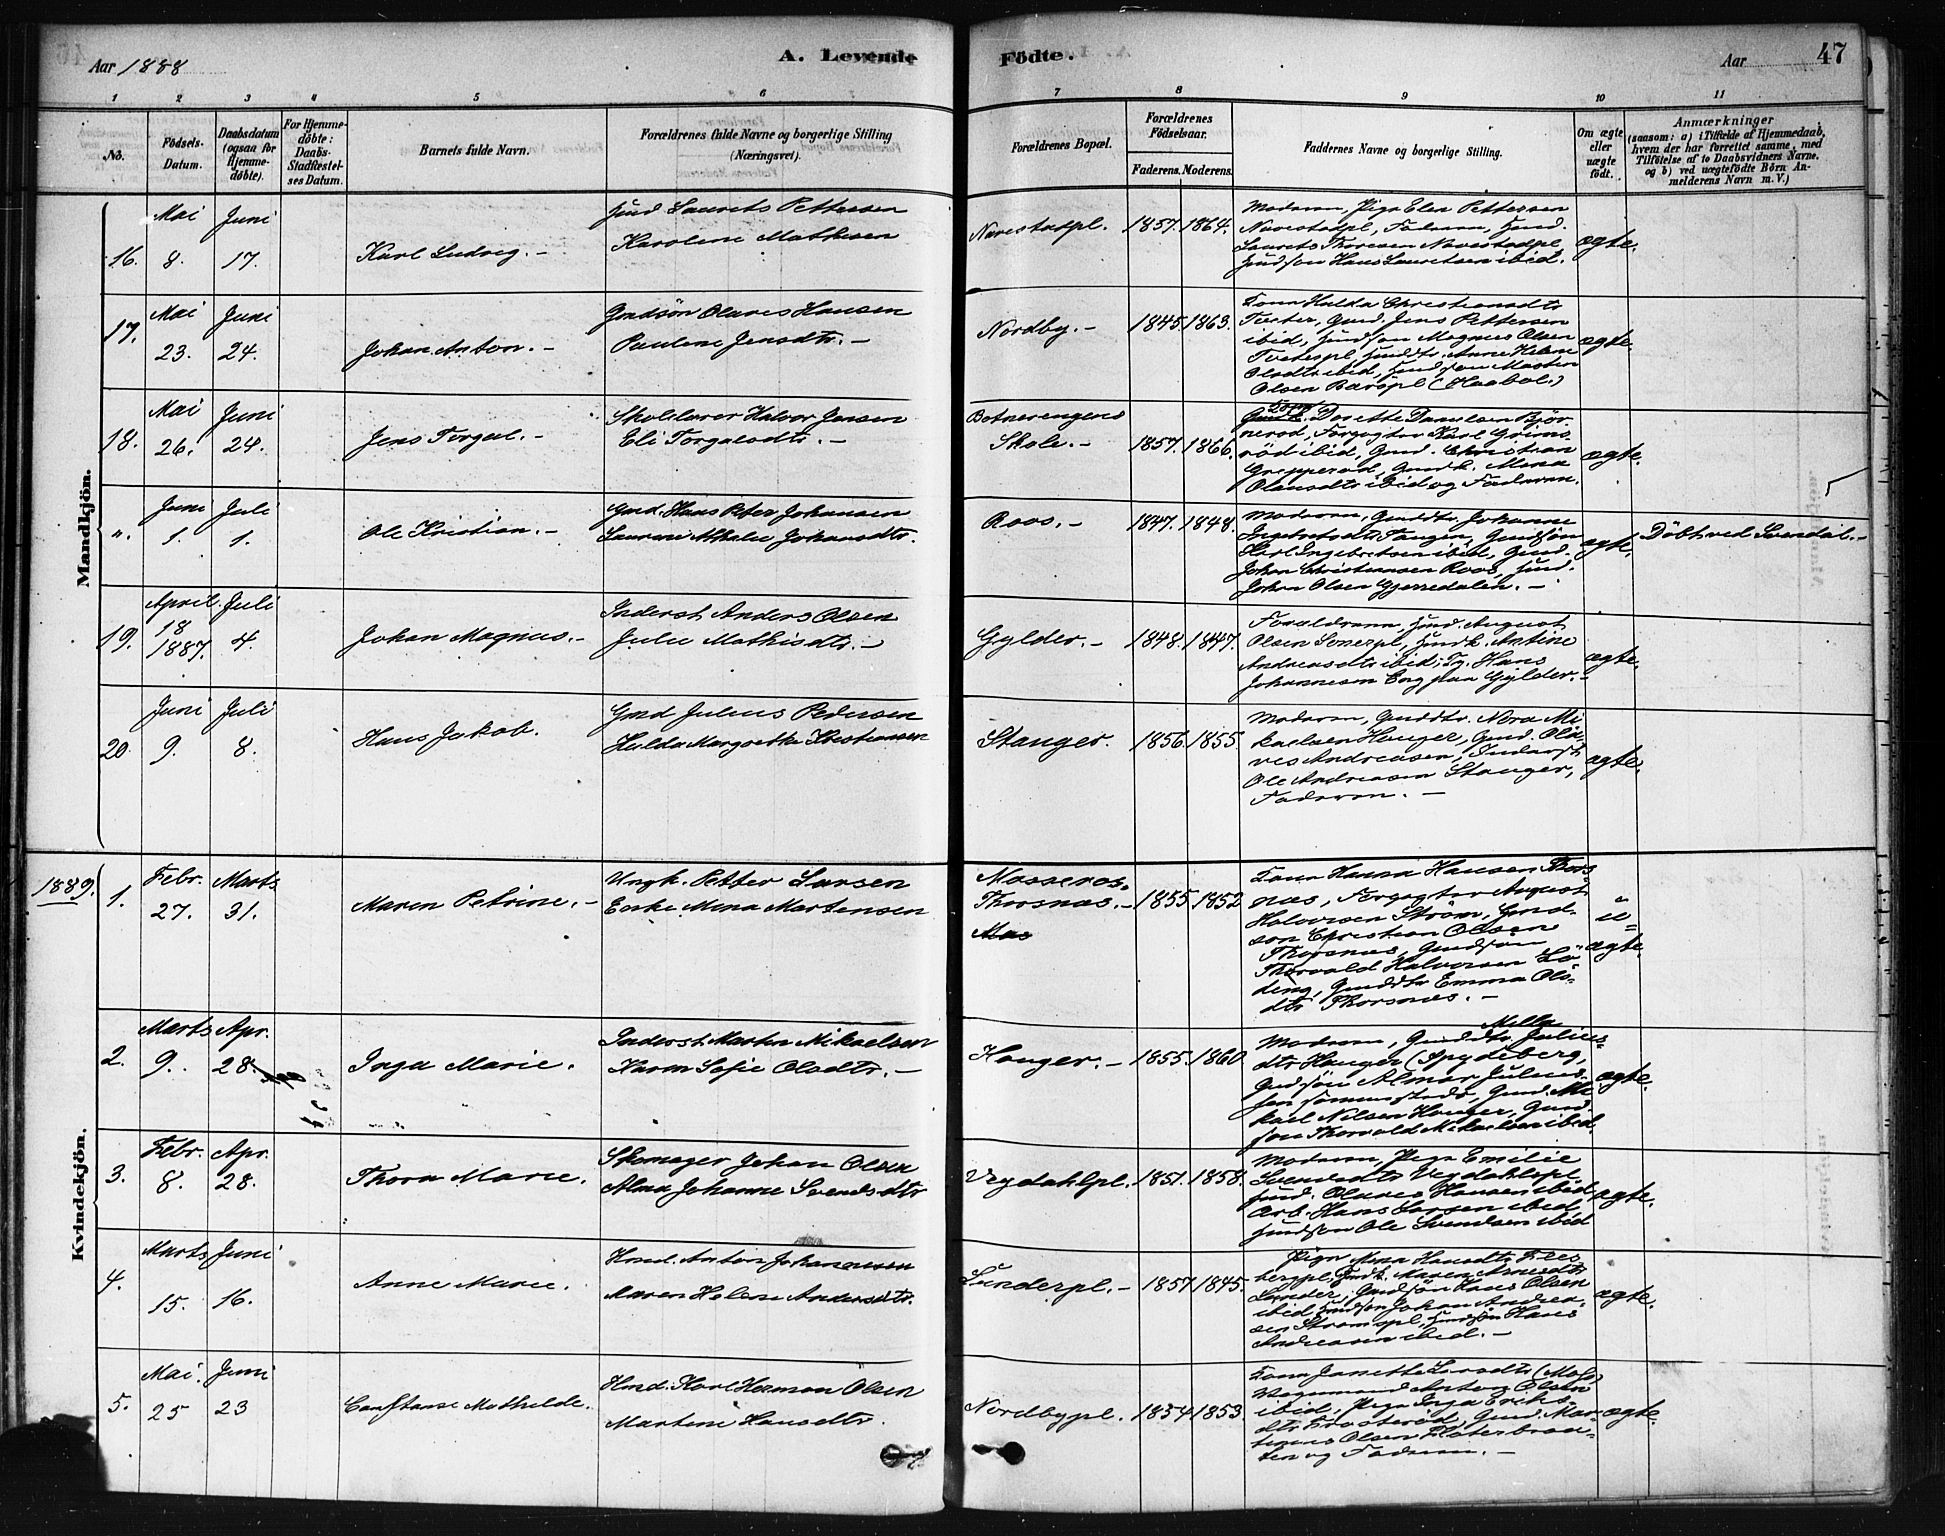 Aar 1888
A. Levende
Födte.
Aar
47
1 2 3 4 5 6 7 8 9 10 11
No.
Födsels-
Datum.
Daabsdatum
(ogsaa for
Hjemme-
döbte).
For Hjemme-
döbte:
Daabs-
Stadfæstel-
ses Datum.
Barnets fulde Navn.
Forældrenes fulde Navne og borgerlige Stilling
(Næringsvei).
Forældrenes Bopæl.
Forældrenes
Födselsaar.
Faderens. Moderens.
Faddernes Navne og borgerlige Stilling.
Om ægte
eller
uægte
födt.
Anmærkninger
(saasom: a) i Tilfælde af Hjemmedaab,
hvem der har forrettet samme, med
Tilföielse af to Daabsvidners Navne.
og b) ved uægtefödte Börn An-
melderens Navn m. V.)
Mandkjön.
16.
Mai
8.
Juni
17.
Karl Ludvig. -
Husm. Laurits Pettersen
Karoline Mathisen
Navestadpl.
1857. 1864.
Moderen, Pige Elen Pettersen
Navestadpl, Faderen, Husm.
Laurits Thoresen Navestadpl,
Hans Lauritsen ibid.
ægte.
17.
Mai
23.
Juni
24.
Johan Anton. -
Gmdsön Olaves Hansen
Pauline Jensdtr. -
Nordby. -
1845. 1863.
Kone Hulda Christiansdtr
Tveter, Gmd. Jens Pettersen
ibid, Magnus Olsen
Tveterpl, Anne Helene
Olsdtr ibid, Morten
Olsen (Haabøl.)
ægte.
18.
Mai
26.
Juni
24.
Jens Torgal. -
Skolelærer Halvor Jensen
Eli Torgalsdtr. -
Botnerengens
Skole. -
1857. 1866.
Dorette Danielsen Bjør-
nerød, Forgagter Karl Grims-
rød ibid, Gmd. Christian
Grepperød, Gmdk. Mina
Olausdtr ibid og Faderen.
ægte.
".
Juni
1.
Juli
1.
Ole Kristian. -
Gmd. Hans Peter Johansen
Laurine Athalie Johansdtr.
Roos. -
1847. 1848.
Moderen, Gmddtr. Johanne
Ingebretsdtr Tangen, Gmdsön
Karl Ingebretsen ibid, Gmd.
Johan Christiansen Roos, Husm.
Johan Olsen Gjerredalen. -
ægte.
Döbt ved Svendal. -
19.
April
18
1887.
Juli
4.
Johan Magnus. -
Inderst Anders Olsen
Julie Mathisdtr. -
Gylder. -
1848. 1847.
Forældrene, Husm. August
Olsen, Husmk. Antine
Andreasdtr ibid, Hans
Johannesen Eng paa Gylder. -
ægte.
20.
Juni
9.
Juli
8.
Hans Jakob.
Gmd Julius Pedersen
Hulda Margrethe Kristiansen
Stanger.
1856. 1855.
Moderen, Gmddtr. Nora Mi-
kaelsen Houger, Gmd. Ola-
ves Andreasen, Inderst
Ole Andreasen Stanger,
Faderen. -
ægte.
1889.
Kvindekjön.
1.
Febr.
27.
Marts
31.
Maren Petrine. -
Ungk. Petter Larsen
Enke Mina Martensen
Mosseros.
Thorsnæs. -
Mos
1855. 1852
Kone Hanna Hansen Thors-
næs, Forgagter August
Halvorsen Strøm, Gmd-
søn Christian Olsen
Thorsnæs, Gmdsøn
Thorvald Halvorsen Lö-
ding, Gmddtr Emma Ols-
dtr Thorsnæs. -
u-
ægte.
2.
Marts
9.
Apr.
28.
Inga Marie.
Inderst Morten Mikaelsen
Karen Sofie Olsdtr. -
Houger. -
1855. 1860
Moderen, Gmddtr. Milla Julius-
dtr Houger (Spydeberg,
Gmdsön Almar Julius-
sen sammesteds, Gmd. Mi-
kael Nilsen Houger, Gmd-
søn Thorvald Mikaelsen ibid.
ægte.
3.
Febr.
8.
Apr.
28.
Thora Marie.
Skomager Johan Olsen
Alma Johanne Svendsdtr
Vegdahlpl.
1851. 1858.
Moderen, Pige Emilie
Svendsdtr Vegdahlspl.
Husm. Olaves Hansen ibid
Arb. Hans Larsen ibid,
Ole Svendsen ibid
ægte.
4.
Marts
15.
Juni
16.
Anne Marie.
Hmd. Anton Johannesen
Maren Helene Andersdtr.
Sunderpl. -
1857 1845.
Pige Mina Hansdtr
Maren Arnesdtr
Sunder, Gmdsön Hans Olsen
ibid, Johan Andrea-
sen Strømspl, Hans
Andreasen ibid. -
ægte.
5.
Mai.
25
Juni
23
Constanse Mathilde.
Hmd. Karl Herman Olsen
Martine Hansdtr.
Nordbypl.
1854 1853.
Kone Janette (Moss)
Vognmand Anton Olsen
ibid, Pige Inga Eriks-
dtr, Gmd. Mar-
tinius Olsen
og Faderen. -
ægte.